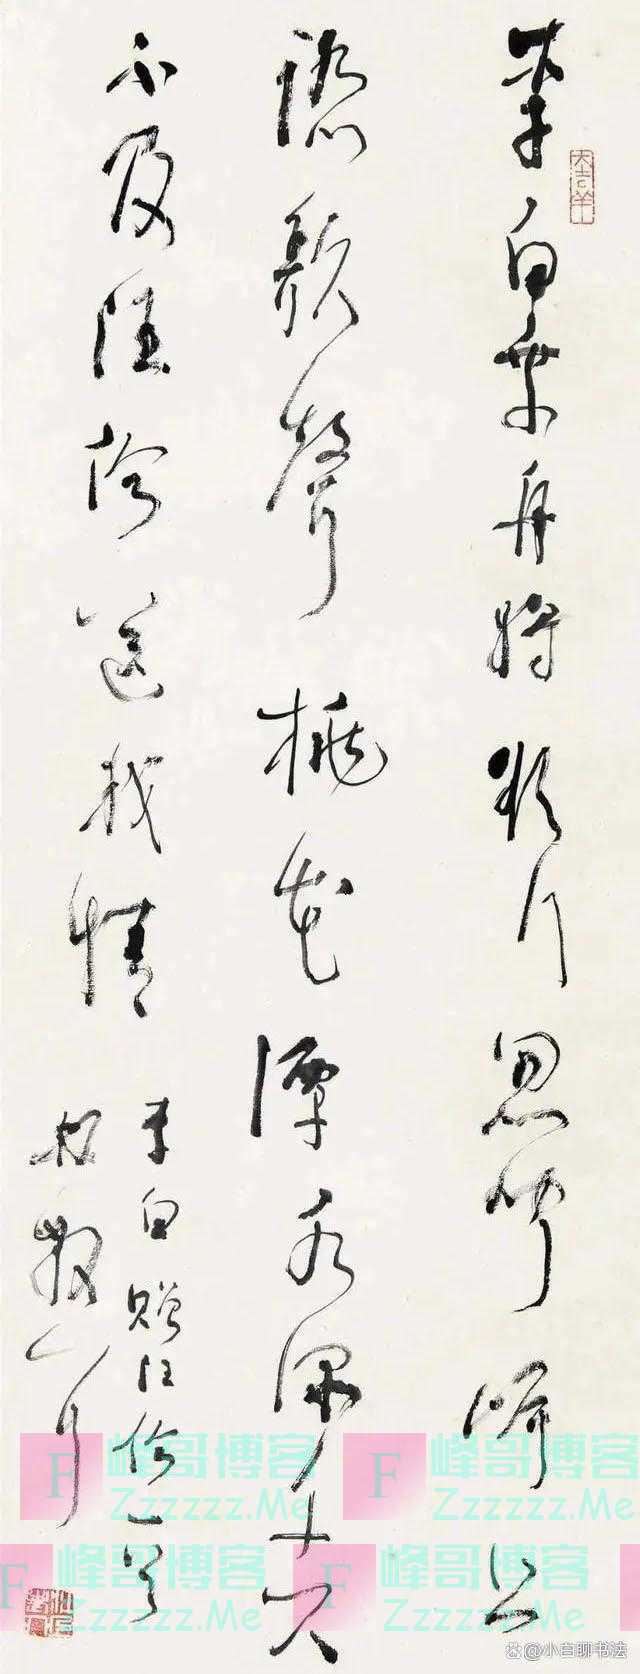 大吉羊
李白乘舟將欲行忽聞岸上
踏歌聲桃花潭水深千尺
不及汪倫送我情
李白贈汪倫一首
散耳
F 峰哥博客
Zzzzzz.Me
F 峰哥博客
Zzzzzz.Me
峰哥博客
Zzzzzz.Me
峰哥博客
Zzzzzz.Me
@小白聊书法